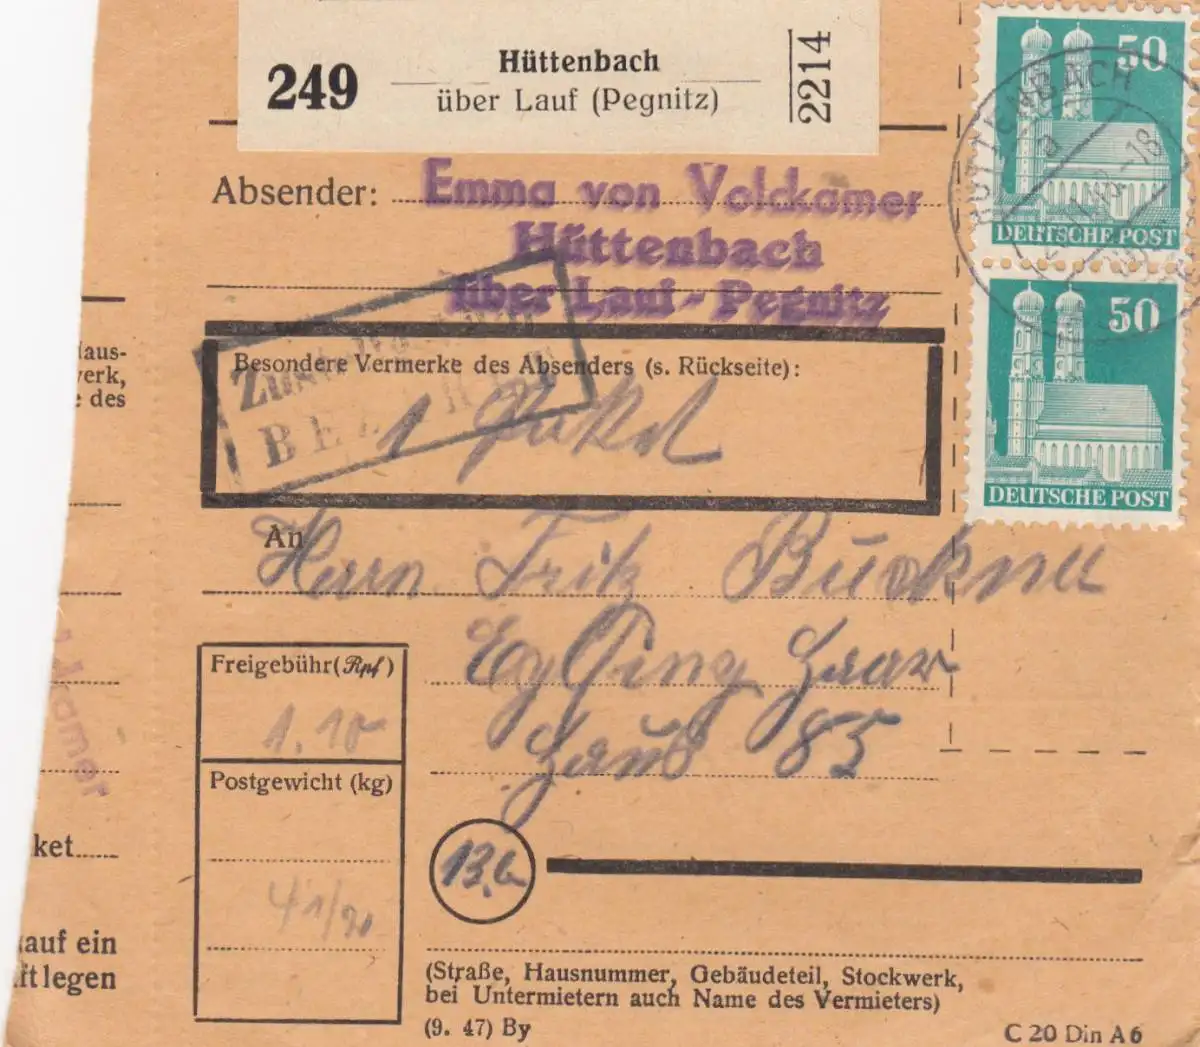 249
Hüttenbach
über Lauf (Pegnitz)
2214
50
DEUTSCHE POST
50
DEUTSCHE POST
HÜTTENBACH
a
-18
Absender: Emma von Volckamer
Hüttenbach
über Lauf-Pegnitz
BEZAHLT
Besondere Vermerke des Absenders (s. Rückseite):
1 Paket
An
Herrn Fritz Buckner
Eglfing Haar
Haus 85
Freigebühr (Rpf)
1.10
Postgewicht (kg)
13b
(Straße, Hausnummer, Gebäudeteil, Stockwerk,
bei Untermietern auch Name des Vermieters)
(9. 47) By
C 20 Din A 6
Haus-
werk,
e des
kamer
ket
auf ein
ft legen